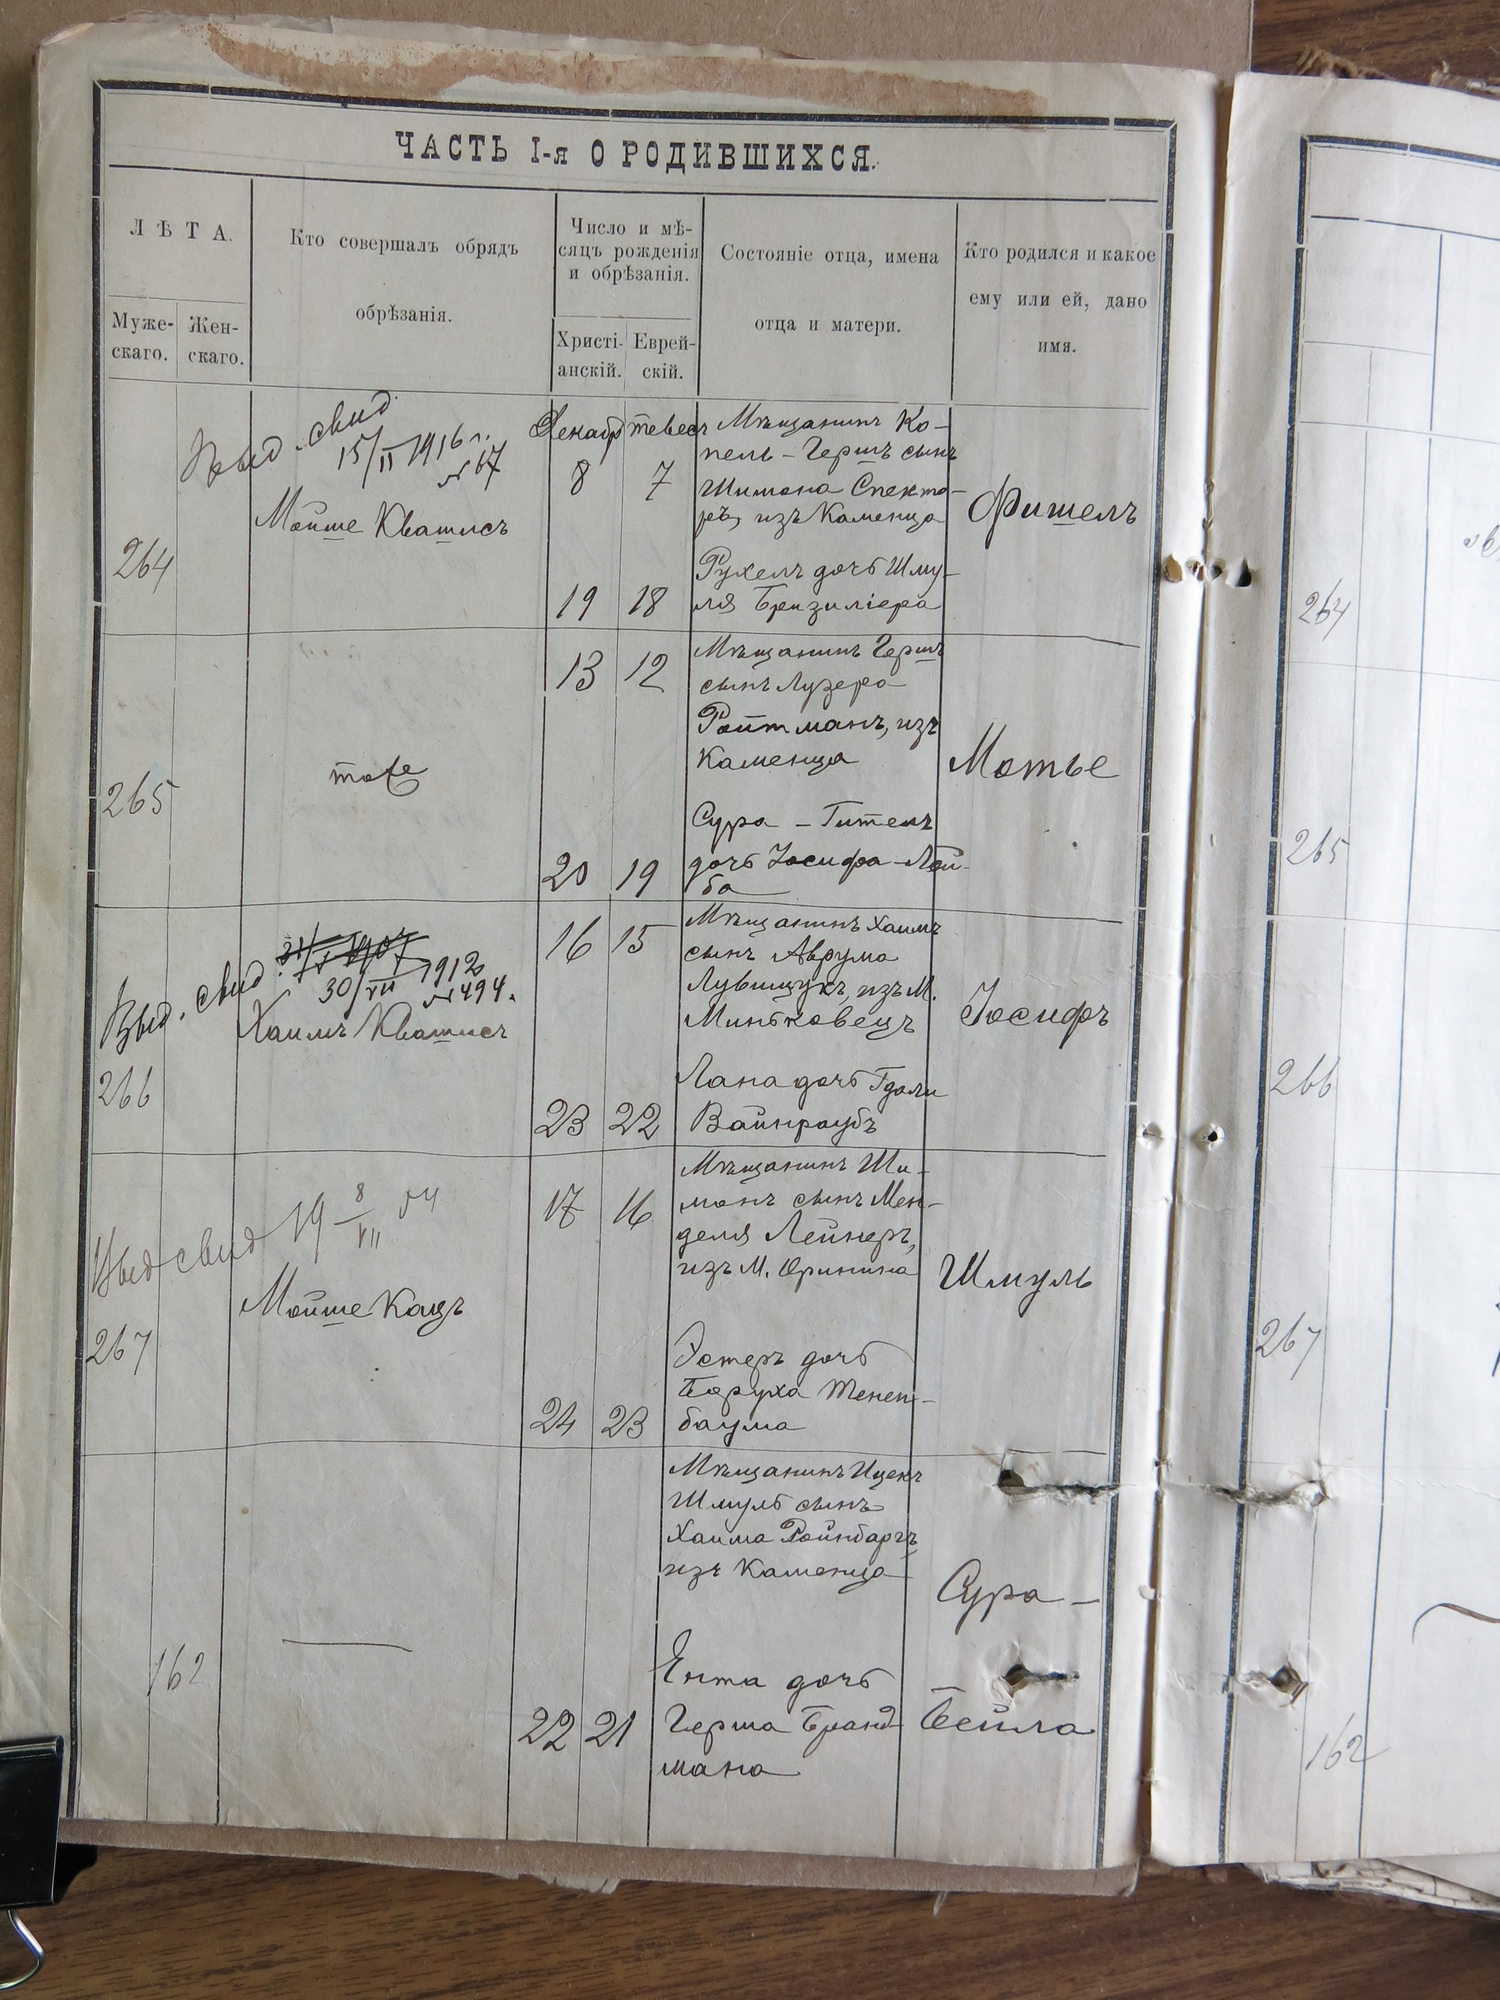 ЧАСТЬ I-я О РОДИВШИХСЯ.
ЛѢТА.
Муже-
скаго.
Жен-
скаго.
Кто совершалъ обрядъ
обрѣзанія.
Число и мѣ-
сяцъ рожденія
и обрѣзанія.
Христі-
анскій.
Еврей-
скій.
Состояніе отца, имена
отца и матери.
Кто родился и какое
ему или ей, дано
имя.
Выд. свид.
15/II 1916 г.
№ 67
Мойше Квашисъ
264
Декабр
тевесъ
8
7
19
18
Мѣщанинъ Ко-
пель-Гершъ сынъ
Шимона Спекто-
ръ, изъ Каменца
Рухель дочь Шму-
ля Бризиліера
Фишелъ
265
тоже
13
12
20
19
Мѣщанинъ Гершъ
сынъ Лузера
Ройтманъ, изъ
Каменца
Сура-Гитель
дочь Іосифа-Лей-
ба
Мотье
Выд. свид.
30/VII 1912
№ 494.
Хаимъ Квашисъ
266
16
15
23
22
Мѣщанинъ Хаимъ
сынъ Аврума
Лувищукъ, изъ М.
Миньковецъ
Лана дочь Гдали
Вайнраубъ
Іосифъ
Выд свид 19 8/VII 54
Мойше Кацъ
267
17
16
24
23
Мѣщанинъ Ши-
монъ сынъ Мен-
деля Лейнеръ,
изъ М. Оринина
Эстеръ дочь
Боруха Тенен-
баума
Шмуль
162
22
21
Мѣщанинъ Ицекъ
Шмуль сынъ
Хаима Ройнбаргъ
изъ Каменца
Ента дочь
Герша Бранд
мана
Сура-
Бейла
264
265
266
267
162